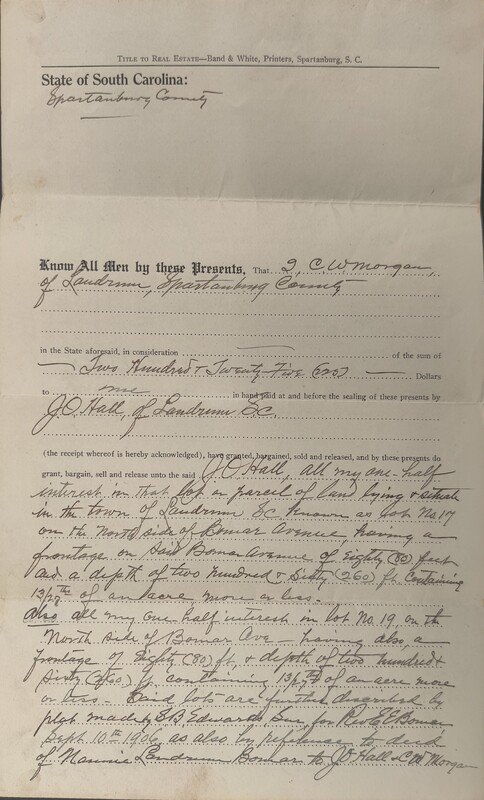 Title to Real Estate—Band & White, Printers, Spartanburg, S. C.
State of South Carolina:
Spartanburg County
Know All Men by these Presents, That I, C. W. Morgan,
of Landrum, Spartanburg County
in the State aforesaid, in consideration of the sum of
Two Hundred & Twenty Five Dollars
to me in hand paid at and before the sealing of these presents by
J. O. Hall, of Landrum S.C.
(the receipt whereof is hereby acknowledged), have granted, bargained, sold and released, and by these presents do
grant, bargain, sell and release unto the said J. O. Hall, all my one-half
interest in that lot or parcel of land lying & situate
in the town of Landrum S.C. Known as lot No. 17
on the North side of Bomar Avenue, having a
frontage on said Bomar Avenue of Eighty (80) feet
and a depth of two hundred & Sixty (260) ft. Containing
13/27th of an acre more or less.
Also all my one half interest in lot No. 19, on the
North side of Bomar Ave — having also a
frontage of Eighty (80) ft, & depth of two hundred &
Sixty (260) ft. containing 13/27th of an acre more
or less. Said lots are further described by
plot made by Edwards Sur. for Rev. Bomar
Sept. 10th 1906, as also by reference to deed
of Nannie Landrum Bomar to J O Hall & C W Morgan